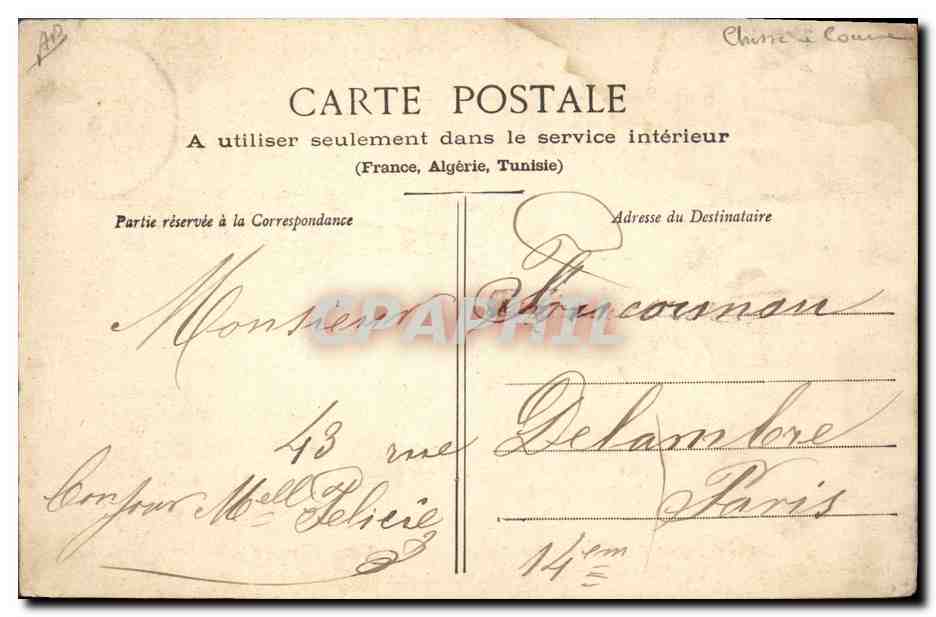 AD
Chasse à Courre
CARTE POSTALE
A utiliser seulement dans le service intérieur
(France, Algérie, Tunisie)
Partie réservée à la Correspondance
Adresse du Destinataire
Monsieur
CPAPHIL
43 rue Delambre
Paris
14em
Bonjour Mell Felicie